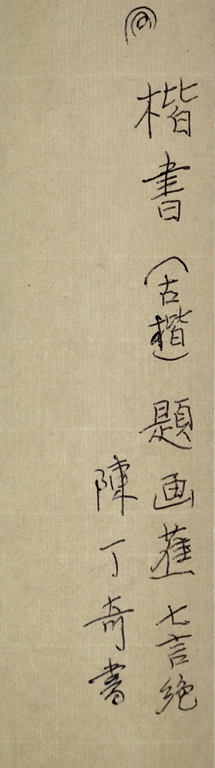 楷書（古楷）題画蓮七言絶
陳丁奇書